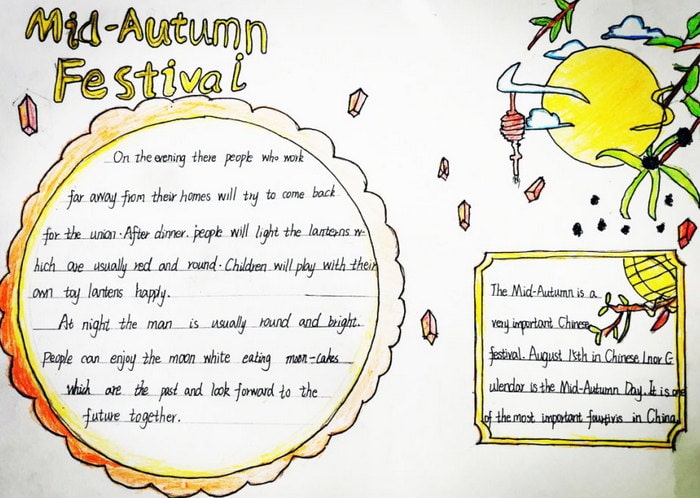 Mid-Autumn
Festival
On the evening there people who work
far away from their homes will try to come back
for the union. After dinner. people will light the lanterns w-
hich are usually red and round. Children will play with their
own toy lantens happy.
At night the man is usually round and bright.
People can enjoy the moon white eating moon-cakes
which are the past and look forward to the
future together.
The Mid-Autumn is a
very important Chinese
festival. August 15th in Chinese
ulendar is the Mid-Autumn Day. It is one
of the most important in China